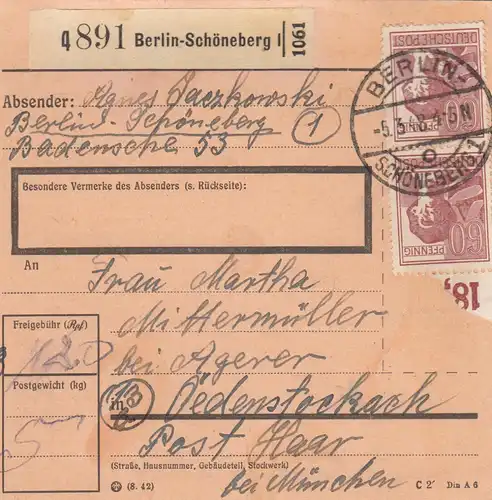 891 Berlin-Schöneberg 1
1061
DEUTSCHE POST
60
PFENNIG
BERLIN-
-5.3.48.-
SCHÖNEBERG 1
Absender: Agnes Jaczkowski
Berlin-Schöneberg 1
Badensche 53
Besondere Vermerke des Absenders (s. Rückseite):
18,
An
Frau Martha
Mittermüller
bei Agerer
in Oedenstockach
Post Haar
bei München
Freigebühr (Rpf)
120
Postgewicht (kg)
5
(Straße, Hausnummer, Gebäudeteil, Stockwerk)
(8. 42)
C 2
Din A 6